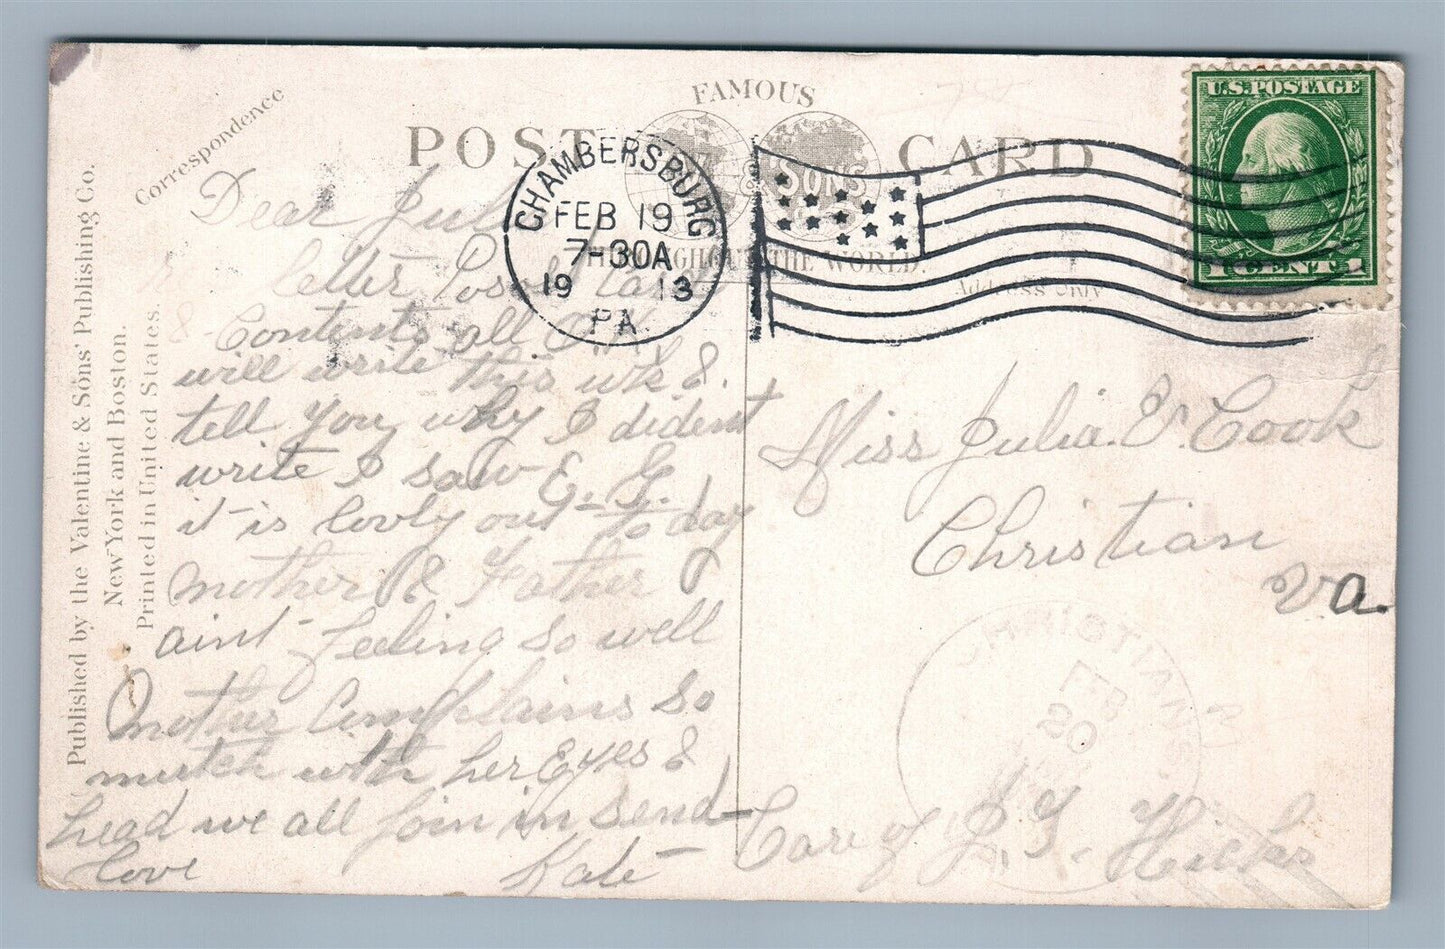 FAMOUS
POST CARD
& SONS
THROUGHOUT THE WORLD.
Correspondence
Address Only
Published by the Valentine & Sons' Publishing Co.
New York and Boston.
Printed in United States.
U.S. POSTAGE
1 CENT 1
CHAMBERSBURG
FEB 19
7-30A
19 13
PA.
Dear
letter
& Contents all O.K.
will write this wk &
tell you why I dident
write I saw E. G.
it is lovly out to day
mother & Father
aint feeling so well
mother Complains so
mutch with her Eyes &
head we all join in send
love Kate
Miss Julia. E. Cook
Christian
Va.
Care of J. G. Hicks
CHRISTIANS
FEB
20